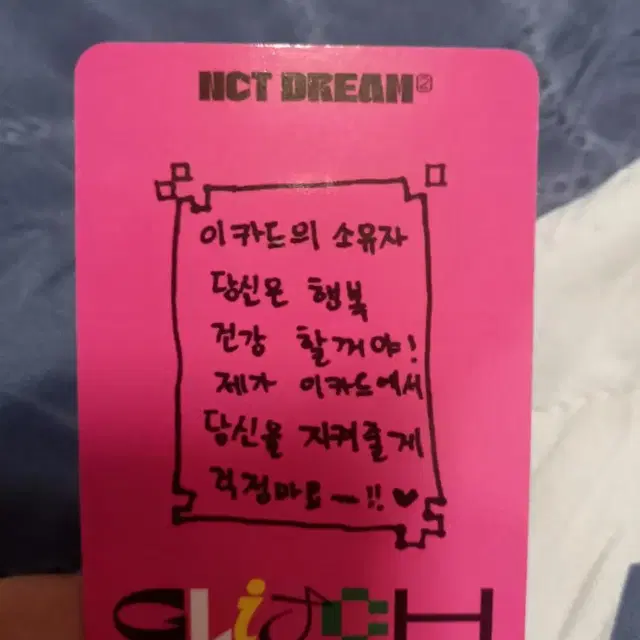 NCT DREAM
이 카드의 소유자
당신은 행복
건강 할꺼야!
제가 이카드에서
당신을 지켜줄게
걱정마요ㅡ!! ♥
GLitCH